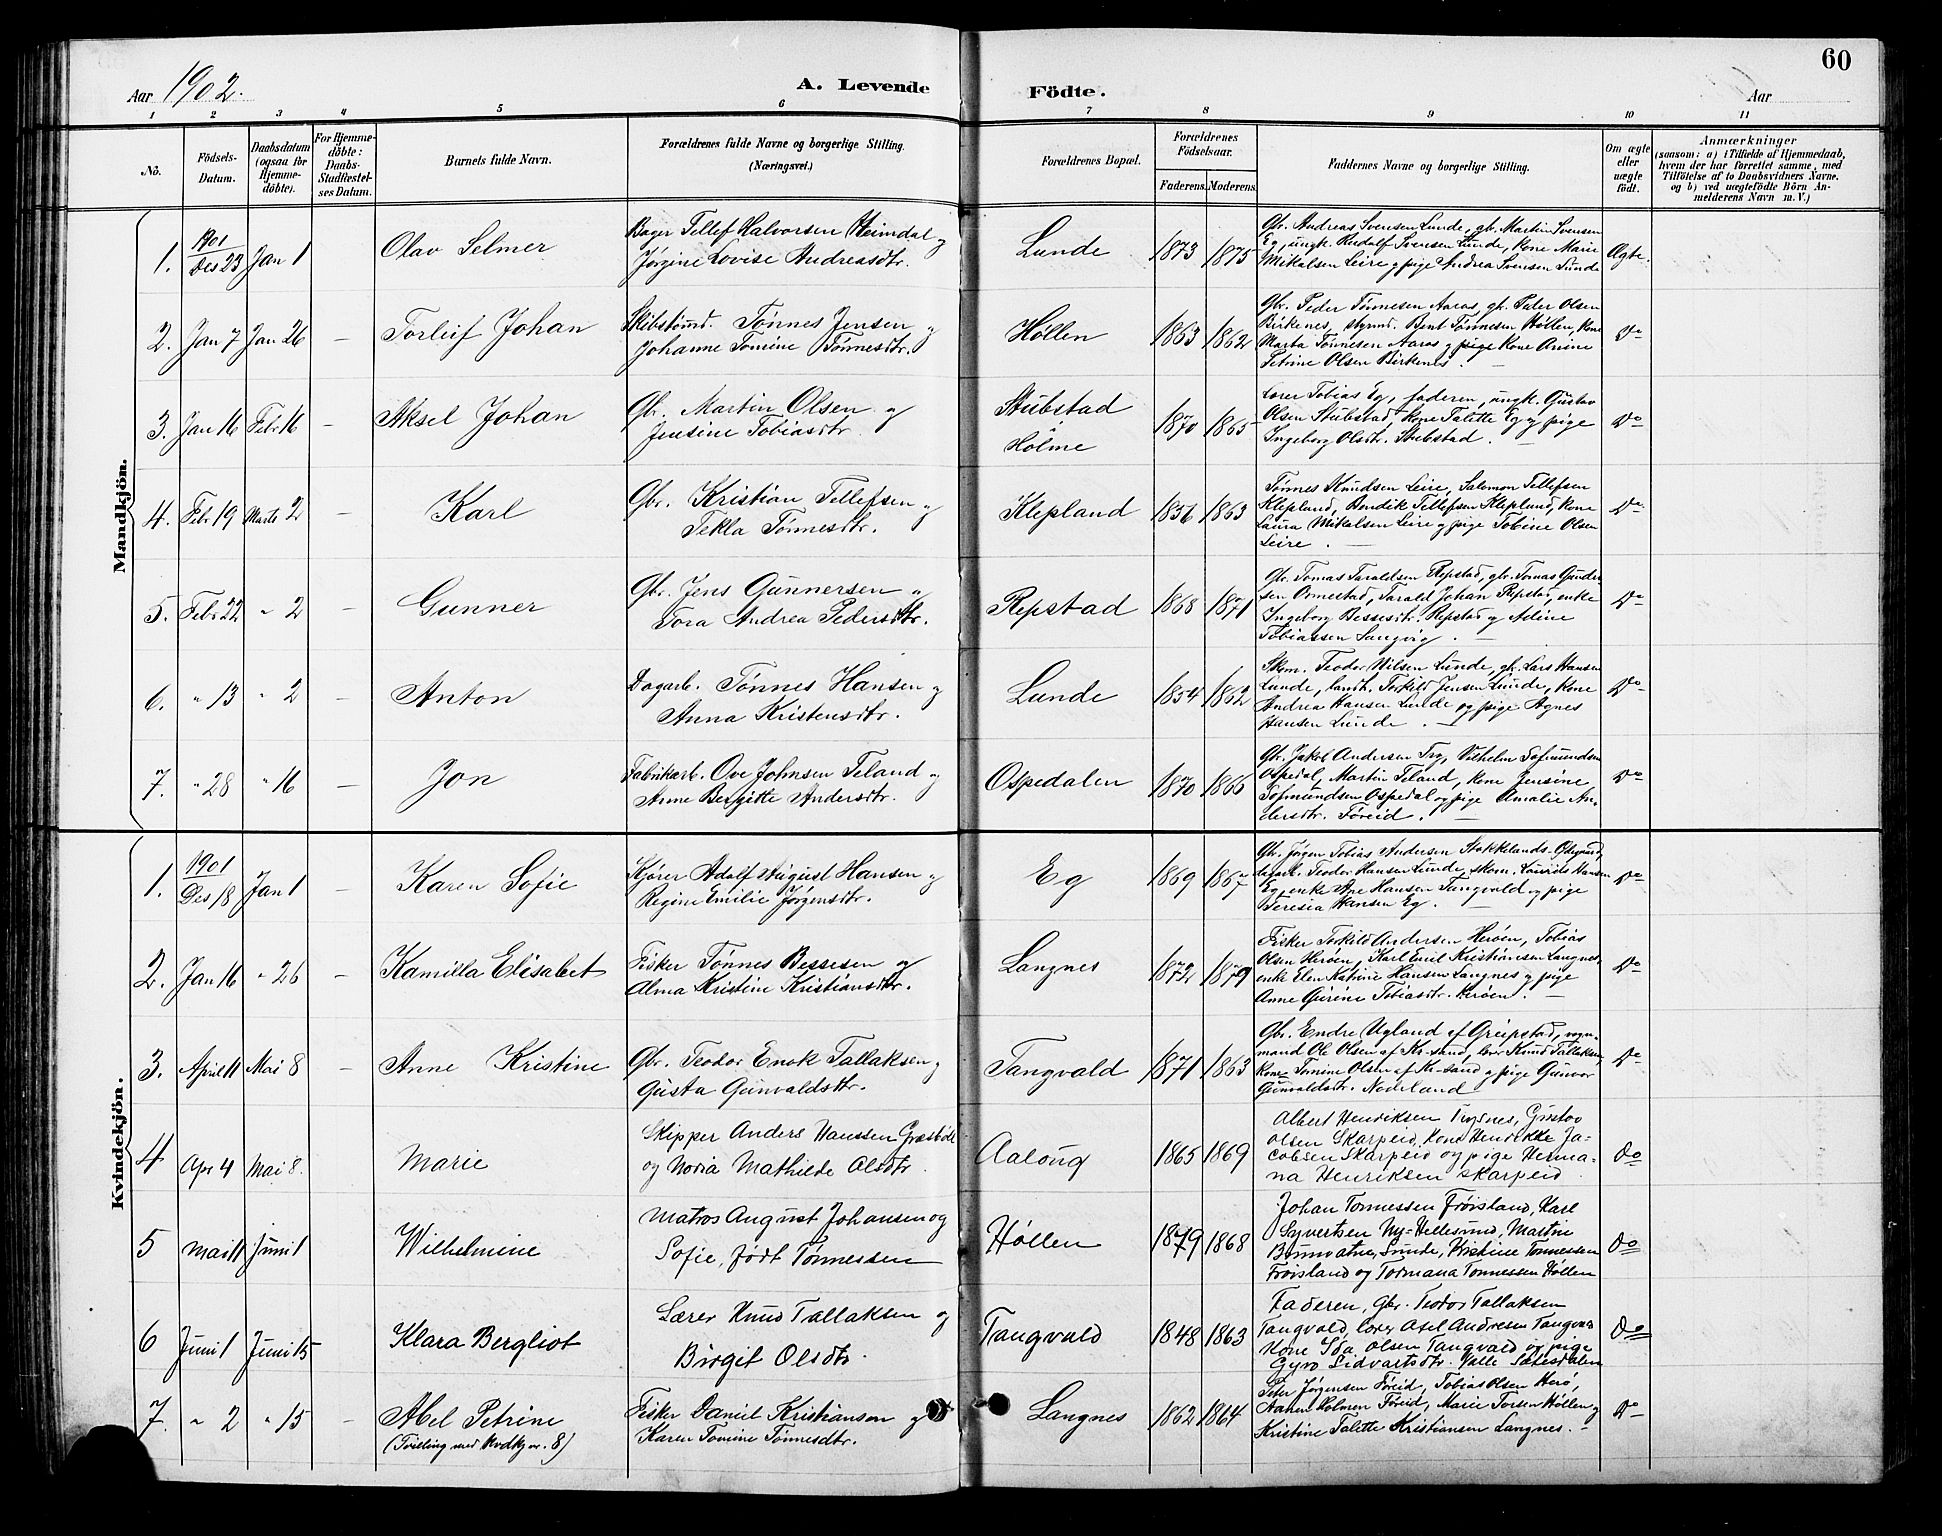 60
Aar 1902.
A. Levende
Födte.
Aar
1 2 3 4 5 6 7 8 9 10 11
No.
Födsels-
Datum.
Daabsdatum
(ogsaa for
Hjemme-
döbte).
For Hjemme-
döbte:
Daabs-
Stadfæstel-
ses Datum.
Barnets fulde Navn.
Forældrenes fulde Navne og borgerlige Stilling.
(Næringsvei.)
Forældrenes Bopæl.
Forældrenes
Födselsaar.
Faderens. Moderens.
Faddernes Navne og borgerlige Stilling.
Om ægte
eller
uægte
födt.
Anmærkninger
(saasom: a) i Tilfælde af Hjemmedaab,
hvem der har forrettet samme, med
Tilföielse af to Daabsvidners Navne.
og b) ved uægtefödte Börn An-
melderens Navn m. V.)
Mandkjön.
1. 1901 Des 23 Jan 1 Olav Selmer
Bager Tellef Halvorsen Heimdal og
Jørgine Lovise Andreasdtr.
Lunde 1873 1875
Gbr. Andreas Svensen Lunde, gb. Martin Svensen
Eg, ungk. Rudolf Svensen Lunde, kone Marie
Mikalsen Leire og pige Andrea Svensen Lunde
Ægte.
2. Jan 7 Jan 26 — Torleif Johan
Skibstømd. Tønnes Jensen og
Johanne Tomine Tønnesdtr.
Høllen 1863 1862
Gbr. Peder Tønnesen Aaros, gb. Peter Olsen
Birkenes, styrmd. Bent Tønnesen Høllen, kone
Marta Tønnesen Aaros og pige Kone Anine
Petrine Olsen Birkenes.
Do
3. Jan 16 Febr 16 — Aksel Johan
Gbr. Martin Olsen og
Jensine Tobiasdtr
Stubstad
Holme
1870 1865
Lærer Tobias Eg, faderen, ungk. Gustav
Olsen Stubstad, kone Talette Eg og pige
Ingeborg Olsdtr. Stubstad.
Do
4. Febr 19 Marts 2 — Karl
Gbr. Kristian Tellefsen og
Tekla Tønnesdtr.
Klepland 1856 1863
Tønnes Knudsen Leire, Salomon Tellefsen
Klepland, Bendik Tellefsen Klepland, kone
Laura Mikalsen Leire og pige Tobine Olsen
Leire. —
Do
5. Febr 22 " 2 — Gunner
Gbr. Jens Gunnersen og
Tora Andrea Pedersdtr.
Repstad 1868 1871
Gbr. Tomas Taraldsen Repstad, gbr. Tomas Gunder-
sen Ormestad, Tarald Johan Repstad, enke
Ingeborg Bessesdtr. Repstad og Adine
Tobiassen Langvig. —
Do
6. " 13 " 2 — Anton
Dagarb. Tønnes Hansen og
Anna Kristensdtr.
Lunde 1854 1862
Skom. Teodor Nilsen Lunde, gb. Lars Hansen
Lunde, landh. Torkild Jensen Lunde, kone
Andrea Hansen Lunde og pige Agnes
Hansen Lunde. —
Do
7. " 28 " 16 — Jon
Fabrikarb. Ove Johnsen Teland og
Anne Bergitte Andersdtr.
Ospedalen 1870 1866
Gbr. Jakob Andersen Try, Vilhelm Tofmundsen
Ospedal, Martin Teland, kone Jensine
Tofmundsen Ospedal og pige Amalie An-
dersdtr. Føreid. —
Do
Kvindekjön.
1. 1901 Des 18 Jan 1 — Karen Sofie
Kjører Adolf August Hansen og
Regine Emilie Jørgensdtr.
Eg 1869 1867
Gbr. Jørgen Tobias Andersen Stokkelands-Ødegaard,
Teodor Hansen Lunde, skom. Hansen
Eg, enke Hansen Tangvald og pige
Teresia Hansen Eg. —
Do
2. Jan 16 " 26 — Kamilla Elisabet
Fisker Tønnes Bessesen og
Alma Kristine Kristiansdtr.
Langnes 1872 1879
Fisker Torkild Andersen Herøen, Tobias
Olsen Herøen, Karl Emil Kristiansen Langnes,
enke Elen Katrine Hansen Langnes og pige
Anne Gurine Tobiasdtr. Herøen. —
Do
3. April 11 Mai 8 — Anne Kristine
Gbr. Teodor Enok Tallaksen og
Gusta Gunvaldsdtr.
Tangvald 1871 1863
Gbr. Endre Ugland af Greipstad, vogn-
mand Ole Olsen af Kr-sand, lærer Knud Tallaksen,
kone Tomine Olsen af Kr-sand og pige Gunvor
Gunvaldsdtr. Nodeland
Do
4 Apr 4 Mai 8. Marie
Skipper Anders Hanssen Græsbøll
og Maria Mathilde Olsdtr.
Aaloug 1865 1869
Albert Henriksen Trysnes, Gustav
Olsen Skarpeid, Kone Henrikke Ja-
cobsen Skarpeid og pige Herma-
na Henriksen Skarpeid.
do
5 Mai 11 Juni 1 Wilhelmine
Matros August Johansen og
Sofie, født Tønnessen
Høllen 1879 1868
Johan Tønnessen Frøisland, Karl
Syvertsen Ny-Hellesund, Martine
Brunvatne, Lunde, Kristine Tønnessen
Frøisland og Tormana Tønnessen Høllen
do
6 Juni 1 Juni 15 Klara Bergliot
Lærer Knud Tallaksen og
Birgit Olsdtr.
Tangvald 1848 1863
Faderen, Gbr. Teodor Tallaksen
Tangvald, lærer Axel Andresen Tangvald
Kone Ida Olsen Tangvald og pige
Gyro Sidvartsdtr. Valle Sætesdalen
do
7. " 2 " 15 — Abel Petrine
(Tvilling med Kvdkj nr. 8)
Fisker Daniel Kristiansen og
Karen Tomine Tønnesdtr.
Langnes 1862 1864
Peter Jørgensen Føreid, Tobias Olsen Herø,
Aanen Holmen Føreid, Marie Torsen Høllen og
Kristine Talette Kristiansen Langnes. —
Do